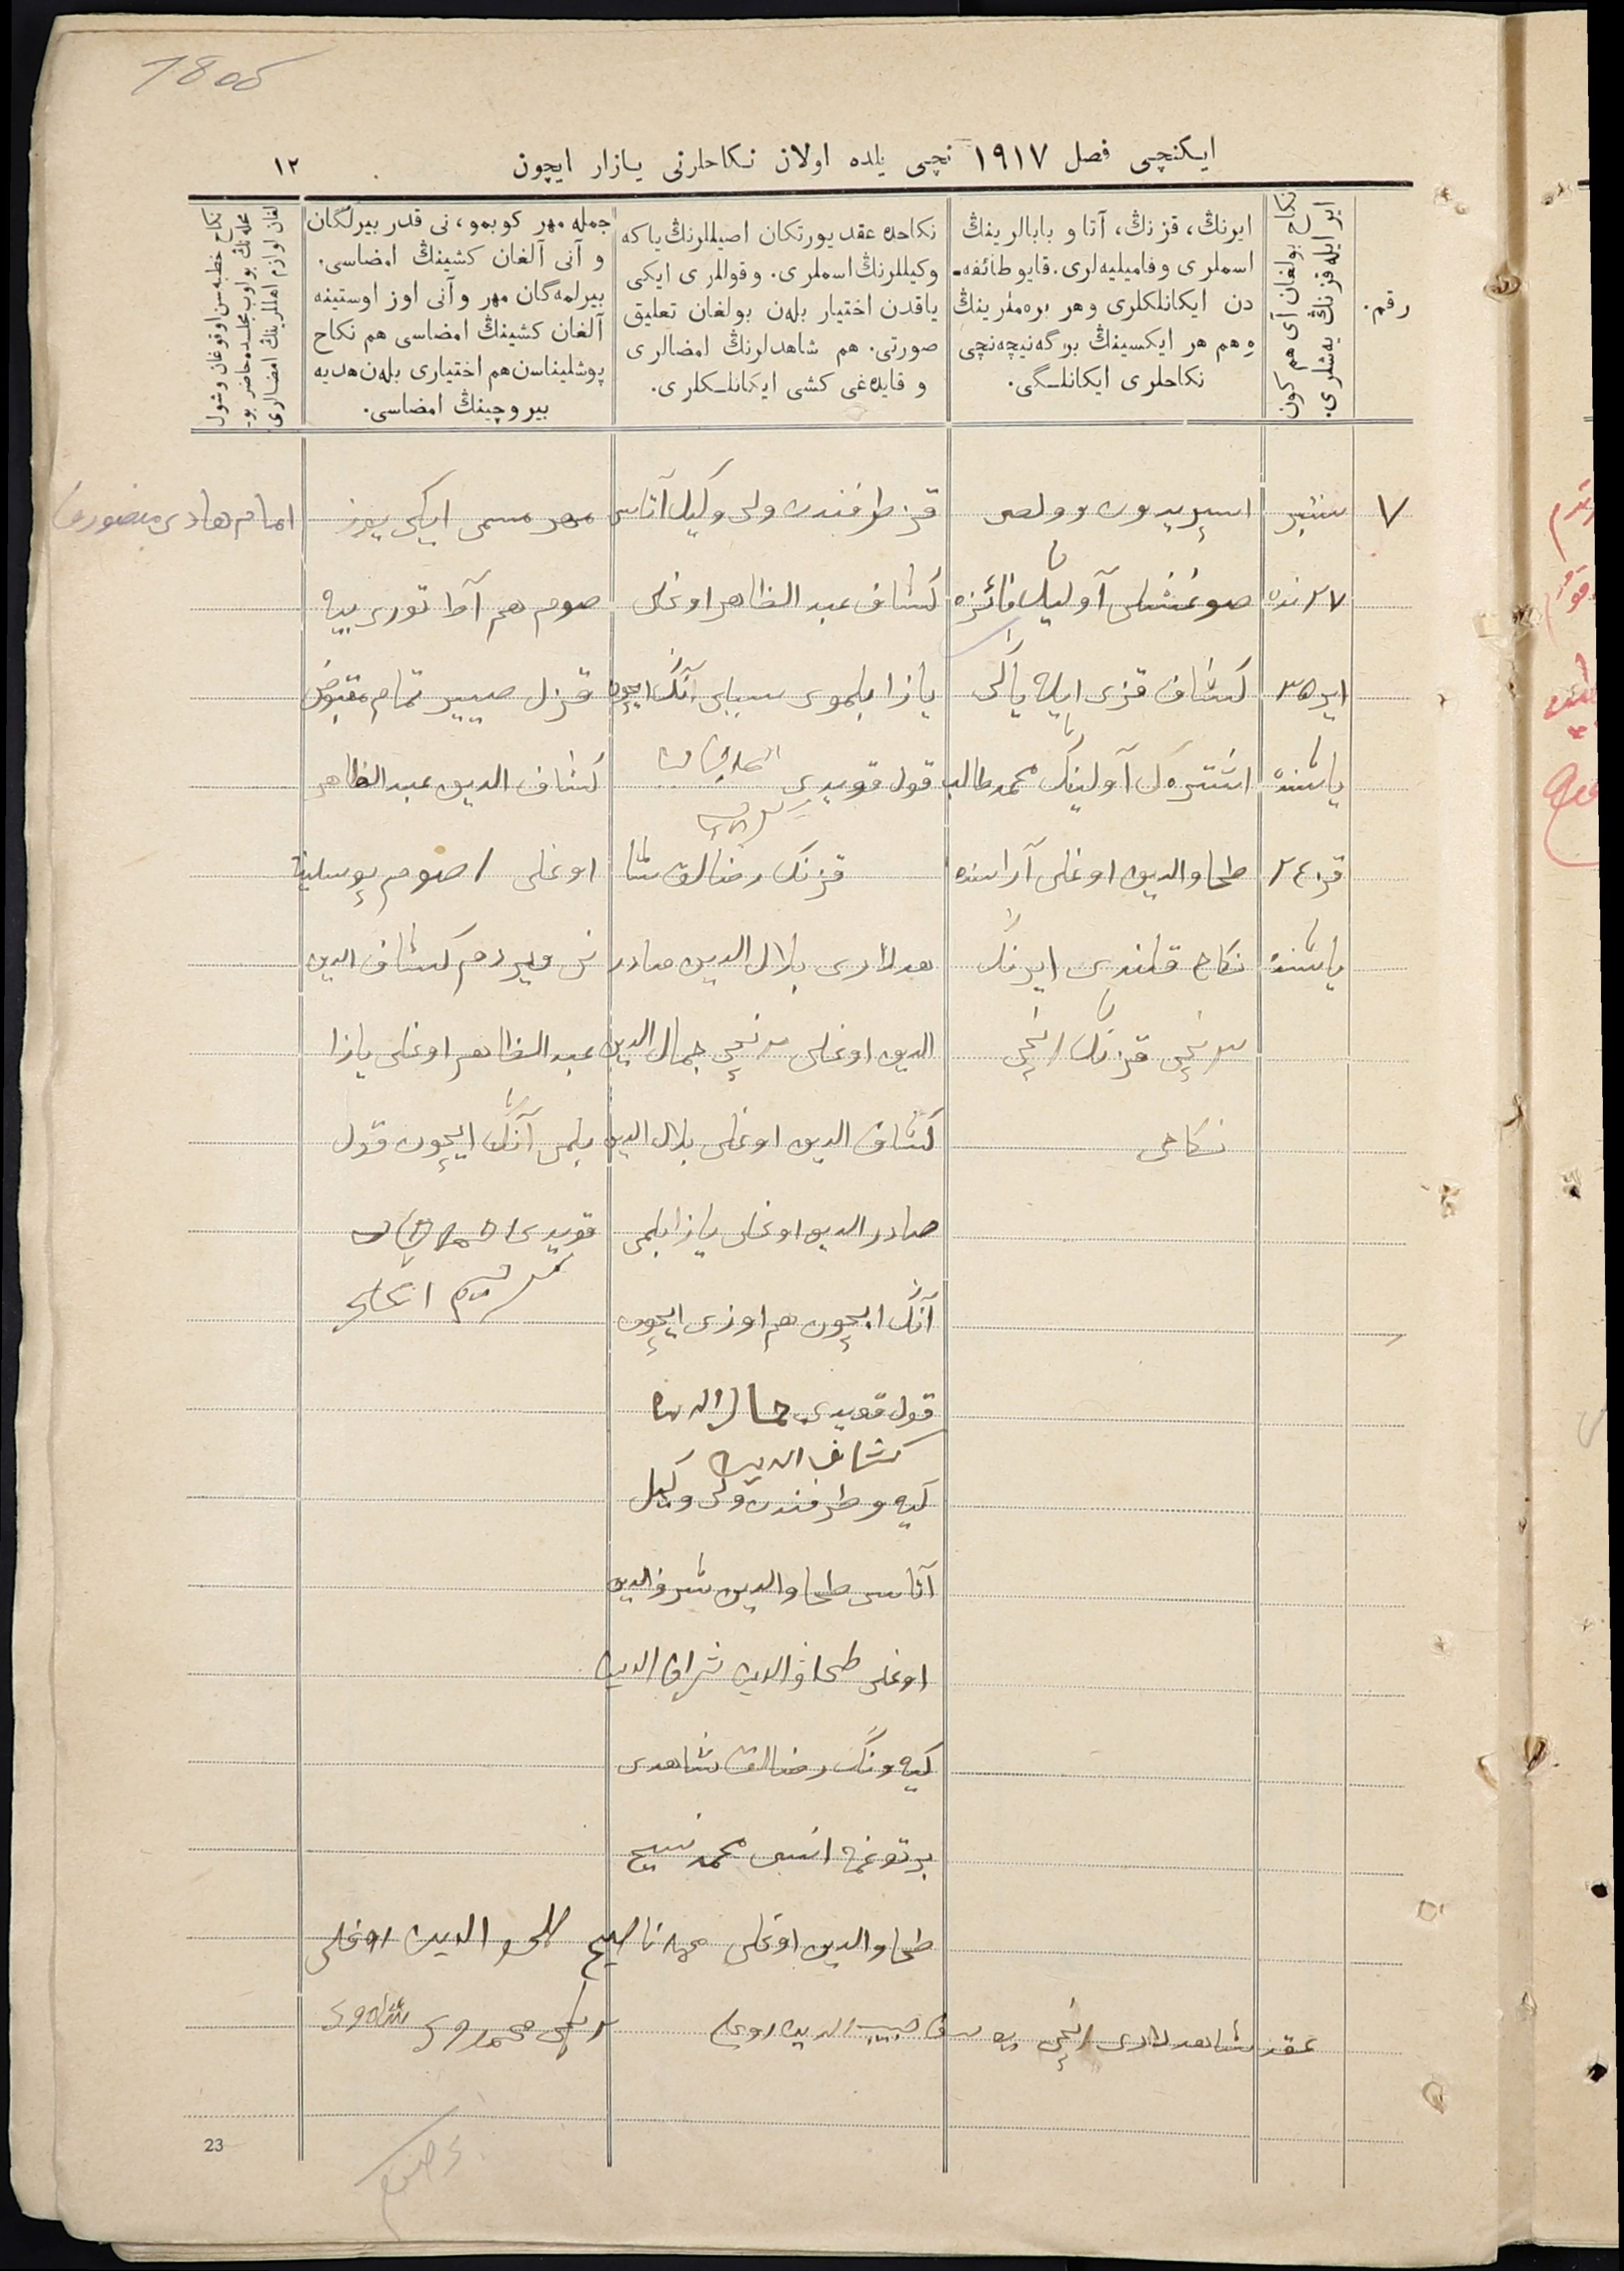 18об
ایکنچی فصل ١٩١٧ نچی یلده اولان نکاحلرنی یازار ایچون
١٢
رقم.
نکاح بولغان آی هم کون
ایر ایله قزنڭ یه‌شلری.
ایرنڭ، قزنڭ، آتا و بابالرینڭ
اسملری و فامیلیه‌لری. قایو طائفه‌ـ
دن ایکانلکلری و هر بره‌مئرینڭ
ه‌م هر ایکسینڭ بو گه‌نیچه‌نچی
نکاحلری ایکانلـگی.
نکاحده عقد یورتکان اصیللرنڭ یا که
وکیللرنڭ اسملری. و قوللری ایکی
یاقدن اختیار بلەن بولغان تعلیق
صورتی. هم شاهدلرنڭ امضالری
و قایده‌غی کشی ایکانلـکلری.
جمله مهر کوبمو، نی قدر بیرلگان
و آنی آلغان کشینڭ امضاسی.
بیرلمه‌گان مهر و آنی اوز اوستینه
آلغان کشینڭ امضاسی هم نکاح
پوشلیناسن هم اختیاری بلەن هدیه
بیروچینڭ امضاسی.
نکاح خطبه‌سن اوقوغان و شول
محله‌نڭ بو اوب مجلسده حاضر بو.
لغان لوازم اهللرینڭ امضالری
٧
سنتبر
٢٧ نده
ایر ٣٥
یاشنده
قز ٢٤
یاشنده
اسپریدون وولصی
صوغشلی آولینڭ فائزه
کشاف قزی ایله یاڭی
اشتره‌ک آولینڭ محمد طالب
طحاوالدین اوغلی آراسنده
نکاح قلندی ایرنڭ
٢ نچی قزنڭ ١ نچی
نکاحی
قز طرفندن ولی وکیل آتاسی
کشاف عبدالظاهر اوغلی
یازا بلموی سببلی آنڭ ایچون
قول قویدی
قزنڭ رضالق شا
هدلاری بلال الدین صادر
الدین اوغلی ٢ نچی جمال الدین
کشاف الدین اوغلی بلال الدین
صادر الدین اوغلی یازا بلمی
آنڭ ایچون هم اوزی ایچون
قول قویدی جمال الدین
کشاف الدین
کیه‌و طرفندن ولی وکیل
آتاسی طحاوالدین شرف الدین
اوغلی طحاوالدین شراف الدین
کیه‌ونڭ رضالق شاهدی
بر توغمه انسی محمد نسیح
طحاوالدین اوغلی محمد ناصیح طحاوالدین اوغلی
مهر مسمی ایکی یوز
صوم هم آط توری بیه
قزل صییر تمام مقبوض
کشاف الدین عبدالظاهر
اوغلی ١ صوم پوسلینه
نی ویردم کشاف الدین
عبدالظاهر اوغلی یازا
بلمی آنڭ ایچون قول
قویدی
امام هادی منصورف
عقد شاهدلاری ١ نچی حبیب الدین اوغلی ٢ نچی
23